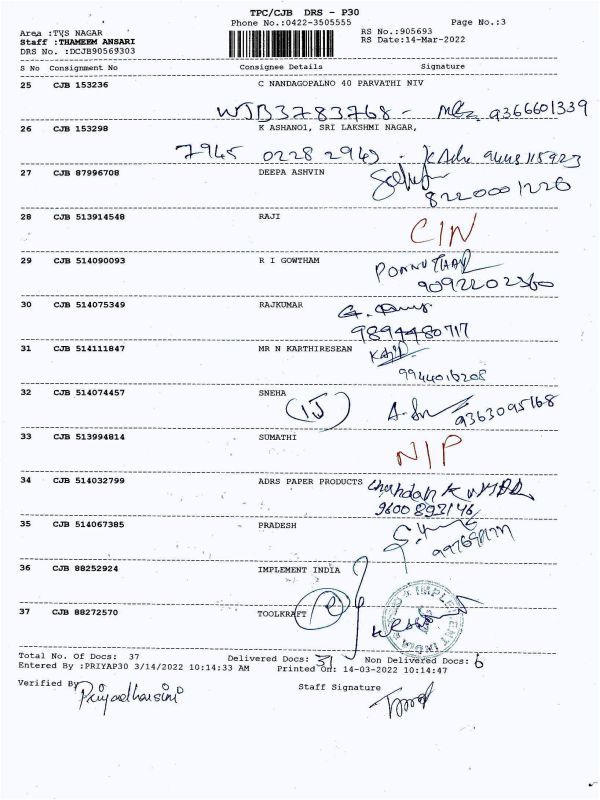 TPC/CJB DRS - P30
Phone No.:0422-3505555
Page No.:3
Area :TVS NAGAR
RS No.:905693
Staff :THAMEEM ANSARI
RS Date:14-Mar-2022
DRS No. :DCJB90569303
S No Consignment No Consignee Details Signature
25 CJB 153236 C NANDAGOPALNO 40 PARVATHI NIV
WJB3783768 - 9366601339
26 CJB 153298 K ASHANO1, SRI LAKSHMI NAGAR,
7945 0228 2949
27 CJB 87996708 DEEPA ASHVIN
8220001226
28 CJB 513914548 RAJI
CIN
29 CJB 514090093 R I GOWTHAM
9092202360
30 CJB 514075349 RAJKUMAR
9894480717
31 CJB 514111847 MR N KARTHIRESEAN
9944016208
32 CJB 514074457 SNEHA
9363095168
33 CJB 513994814 SUMATHI
N/P
34 CJB 514032799 ADRS PAPER PRODUCTS
9600893146
35 CJB 514067385 PRADESH
36 CJB 88252924 IMPLEMENT INDIA
37 CJB 88272570 TOOLKRAFT
IMPLEMENT INDIA
Total No. Of Docs: 37 Delivered Docs: 31 Non Delivered Docs: 6
Entered By :PRIYAP30 3/14/2022 10:14:33 AM Printed On: 14-03-2022 10:14:47
Verified By Priyadharsini Staff Signature